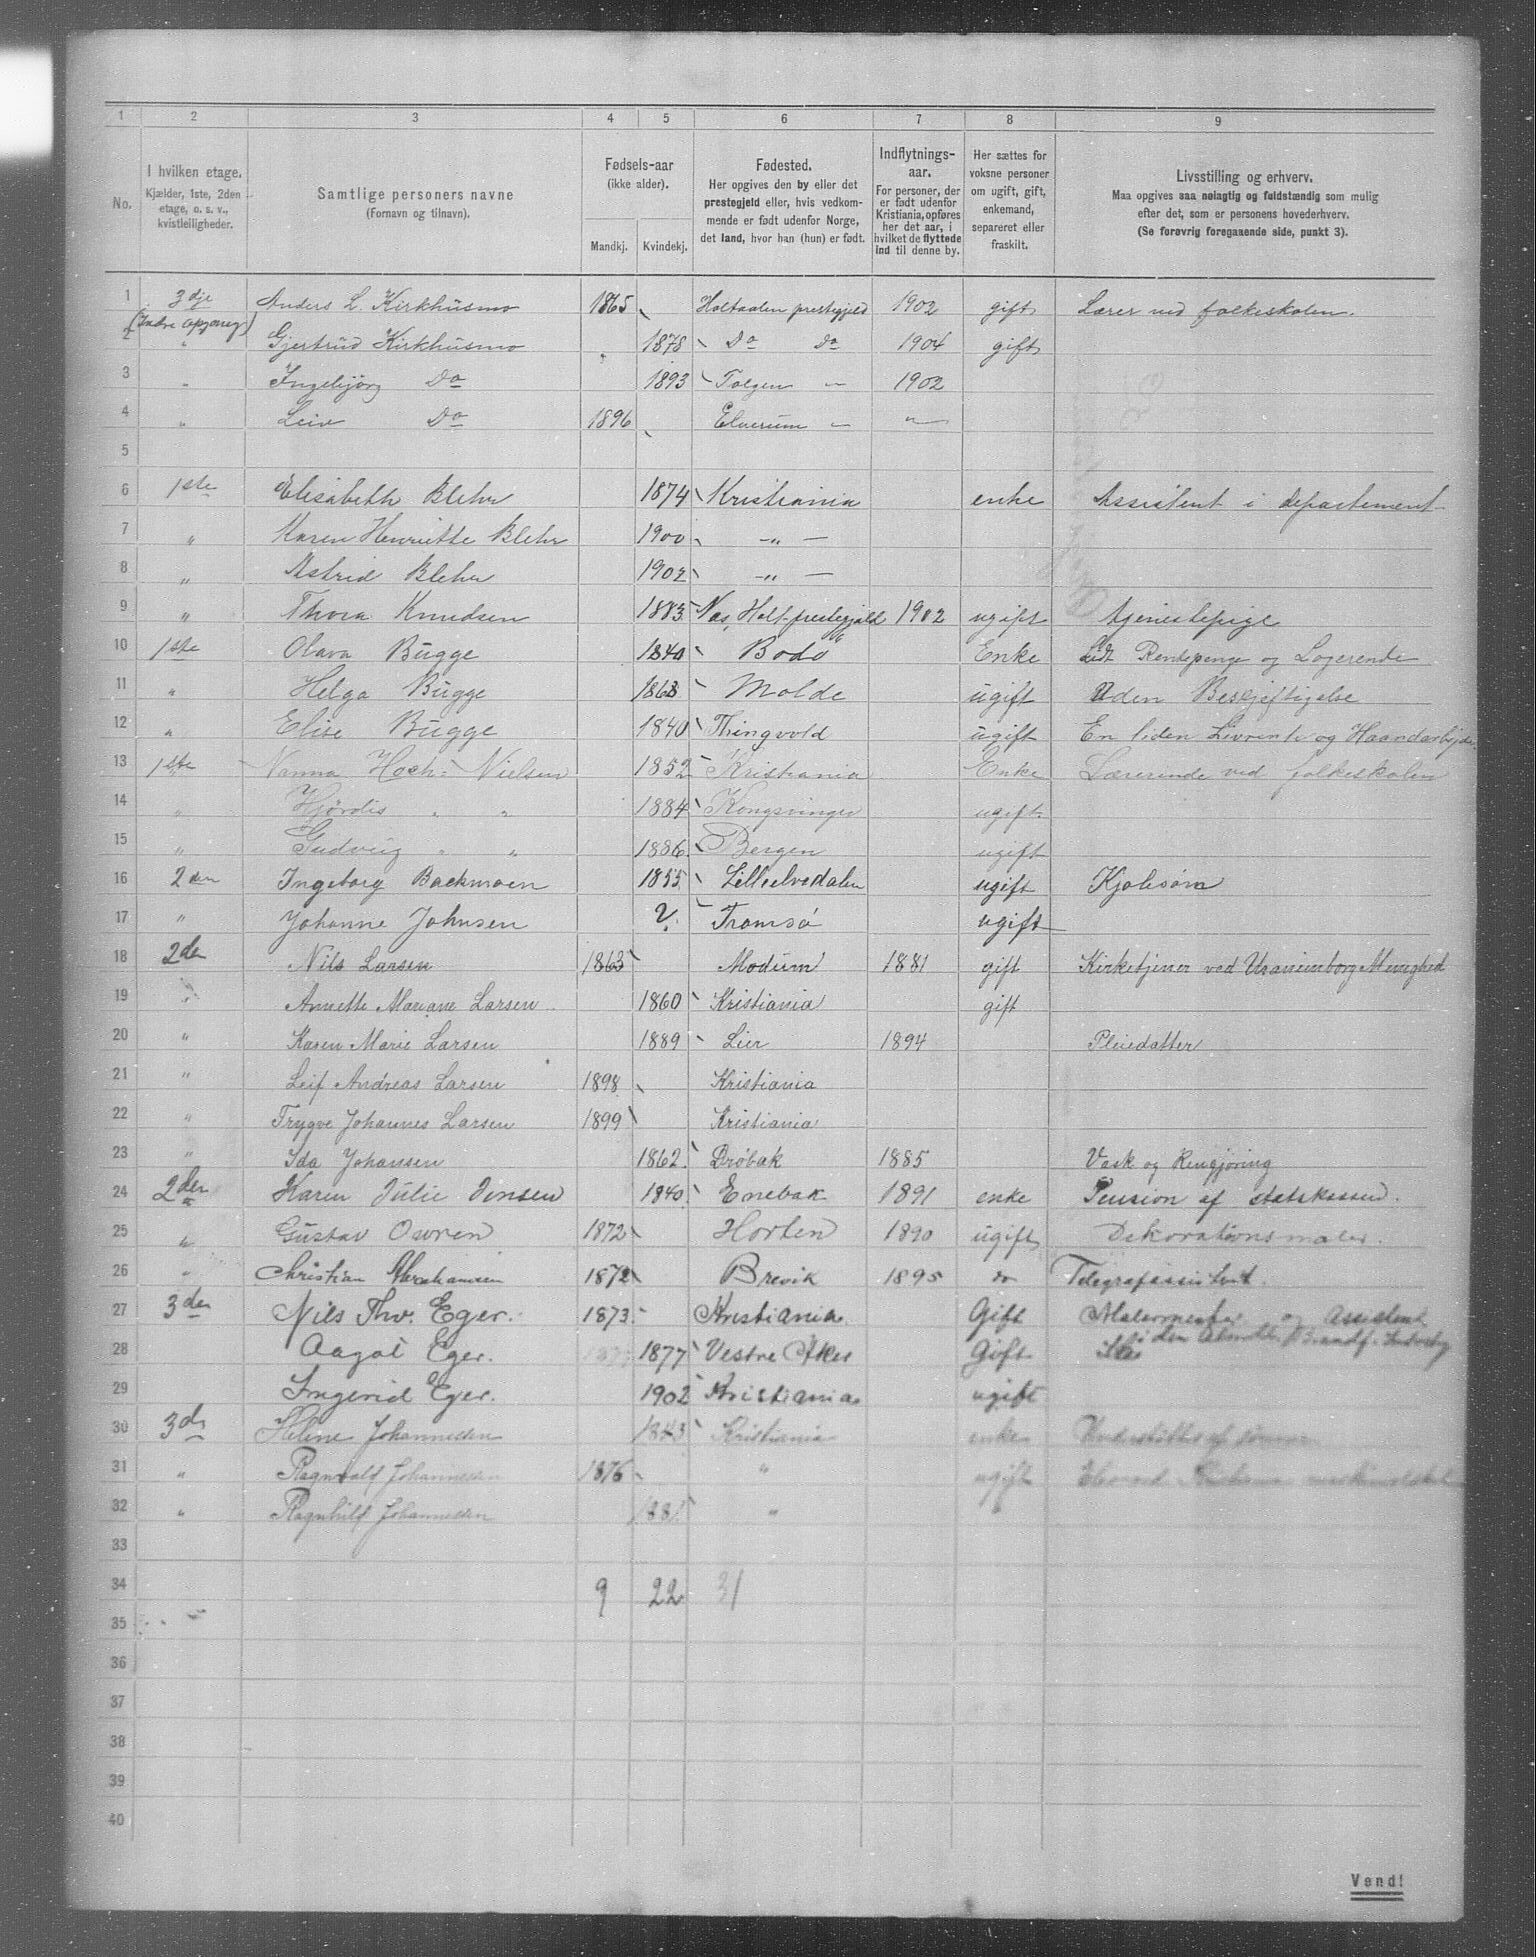 1 2 3 4 5 6 7 8 9
No.
I hvilken etage.
Kjælder, 1ste, 2den
etage, o. s. v.,
kvistleiligheder.
Samtlige personers navne
(Fornavn og tilnavn).
Fødsels-aar
(ikke alder).
Mandkj. Kvindekj.
Fødested.
Her opgives den by eller det
prestegjeld eller, hvis vedkom-
mende er født udenfor Norge,
det land, hvor han (hun) er født.
Indflytnings-
aar.
For personer, der
er født udenfor
Kristiania, opføres
her det aar, i
hvilket de flyttede
ind til denne by.
Her sættes for
voksne personer
om ugift, gift,
enkemand,
separeret eller
fraskilt.
Livsstilling og erhverv.
Maa opgives saa nøiagtig og fuldstændig som mulig
efter det, som er personens hovederhverv.
(Se forøvrig foregaaende side, punkt 3).
1 3dje Anders L. Kirkhusmo 1865 Holtaalen prestegjeld 1902 gift Lærer ved folkeskolen.
(Indre opgang)
2 " Gjertrud Kirkhusmo 1878 Do Do 1904 gift
3 " Ingebjörg Do 1893 Tolgen — 1902
4 " Leiv Do 1896 Elverum — "
5
6 1ste Elisabeth Blehr 1874 Kristiania enke Assistent i departement
7 " Karen Henriette Blehr 1900 — " —
8 " Astrid Blehr 1902 — " —
9 " Thora Knudsen 1883 Nas, Holt prestegjeld 1902 ugift tjenestepige
10 1ste Olava Bugge 1840 Bodø Enke Lidt Rentepenge og Logerende
11 " Helga Bugge 1868 Molde ugift Uden Beskjeftigelse
12 " Elise Bugge 1840 Thingvold ugift En liden Livrente og Haandarbejde
13 1ste Nanna Hoch-Nielsen 1852 Kristiania Enke Lærerinde ved folkeskolen
14 " Hjördis " " 1884 Kongsvinger ugift
15 " Gudveig " " 1886 Bergen ugift
16 2den Ingeborg Backmoen 1855 Lilleelvedalen ugift Kjolesøm
17 " Johanne Johnsen ? Tromsø ugift
18 2den Nils Larsen 1863 Modum 1881 gift Kirketjener ved Uranienborg Menighed
19 " Annette Mariane Larsen 1860 Kristiania gift
20 " Karen Marie Larsen 1889 Lier 1894 Pleiedatter
21 " Leif Andreas Larsen 1898 Kristiania
22 " Trygve Johannes Larsen 1899 Kristiania
23 " Ida Johansen 1862 Drøbak 1885 Vask og Rengjøring
24 2den Karen Julie Jensen 1840 Enebak 1891 enke Pension af statskassen.
25 " Gustav Owren 1872 Horten 1890 ugift Dekorationsmaler.
26 " Christian Abrahamsen 1872 Brevik 1895 do Telegrafassistent.
27 3den Nils Thv. Eger. 1873 Kristiania Gift Malermester og Assistent
i den Brandf.
28 Aagot Eger. 1877 Vestre Aker Gift
29 Ingerid Eger. 1902 Kristiania ugift
30 3de Heline Johannessen 1843 Kristiania enke Understøttes af sønner
31 " Ragnvald Johannessen 1876 " ugift
32 " Ragnhild Johannessen 1881 " "
33
34 9 22 31
35
36
37
38
39
40
Vend!